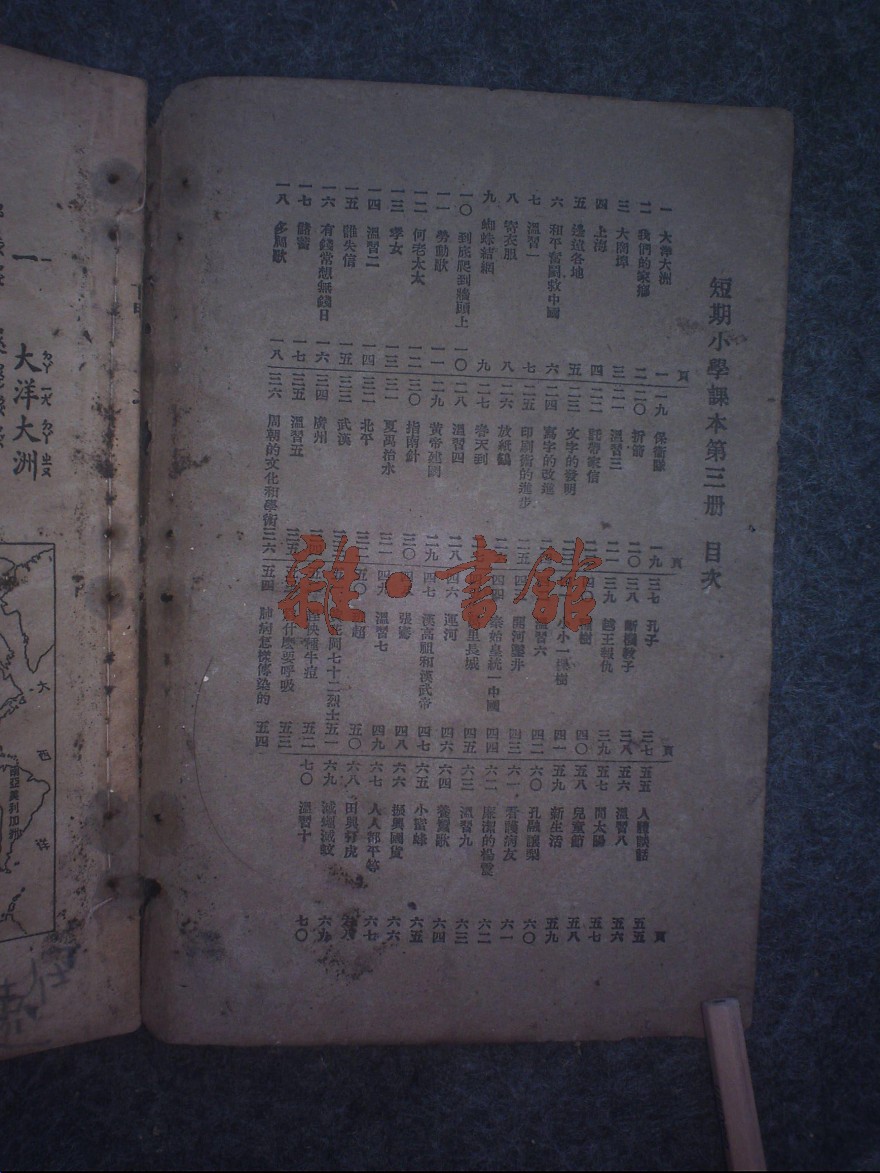 短期小學課本第三册 目次
頁
一 大洋大洲 一
二 我們的家鄉 二
三 大商埠 三
四 上海 四
五 邊遠各地 五
六 和平奮鬪救中國 六
七 溫習一 七
八 寄衣服 八
九 蜘蛛結網 九
一〇 到底爬到牆頭上 一〇
一一 勞動歌 一一
一二 何老太太 一二
一三 孝女 一三
一四 溫習二 一四
一五 誰失信 一五
一六 有錢常想無錢日 一六
一七 儲蓄 一七
一八 多福歌 一八
頁
一九 保衛隊 一九
二〇 折箭 二〇
二一 溫習三 二一
二二 託帶家信
二三 文字的發明
二四 寫字的改進
二五 印刷術的進步 二五
二六 放紙鷂
二七 春天到
二八 溫習四 二八
二九 黃帝建國 二九
三〇 指南針 三〇
三一 夏禹治水 三一
三二 北平 三二
三三 武漢
三四 廣州
三五 溫習五 三五
三六 周朝的文化和學術 三六
頁
三七 孔子 三七
三八 斷機教子 三八
三九 越王報仇 三九
四〇 樹 四〇
小小一棵樹 四一
溫習六 四二
四三 開河鑿井 四三
四四 秦始皇統一中國 四四
里長城 四五
四六 運河 四六
四七 漢高祖和漢武帝 四七
張騫 四八
四九 溫習七 四九
五〇 超 五〇
花岡七十二烈士 五一
趕快種牛痘 五二
什麼要呼吸 五三
五四 肺病怎樣傳染的 五四
頁
五五 人體談話 五五
五六 溫習八 五六
五七 問太陽 五七
五八 兒童節 五八
五九 新生活 五九
六〇 孔融讓梨 六〇
六一 看護病友 六一
六二 廉潔的楊震 六二
六三 溫習九 六三
六四 養蠶歌 六四
六五 小蜜蜂 六五
六六 提倡國貨 六六
六七 人人都平等 六七
六八 田興打虎 六八
六九 滅蠅滅蚊 六九
七〇 溫習十 七〇
雜·書館
一
大洋大洲
ㄉㄚ ㄧㄤ ㄉㄚ ㄓㄡ
南亞美利加洲
大
西
洋